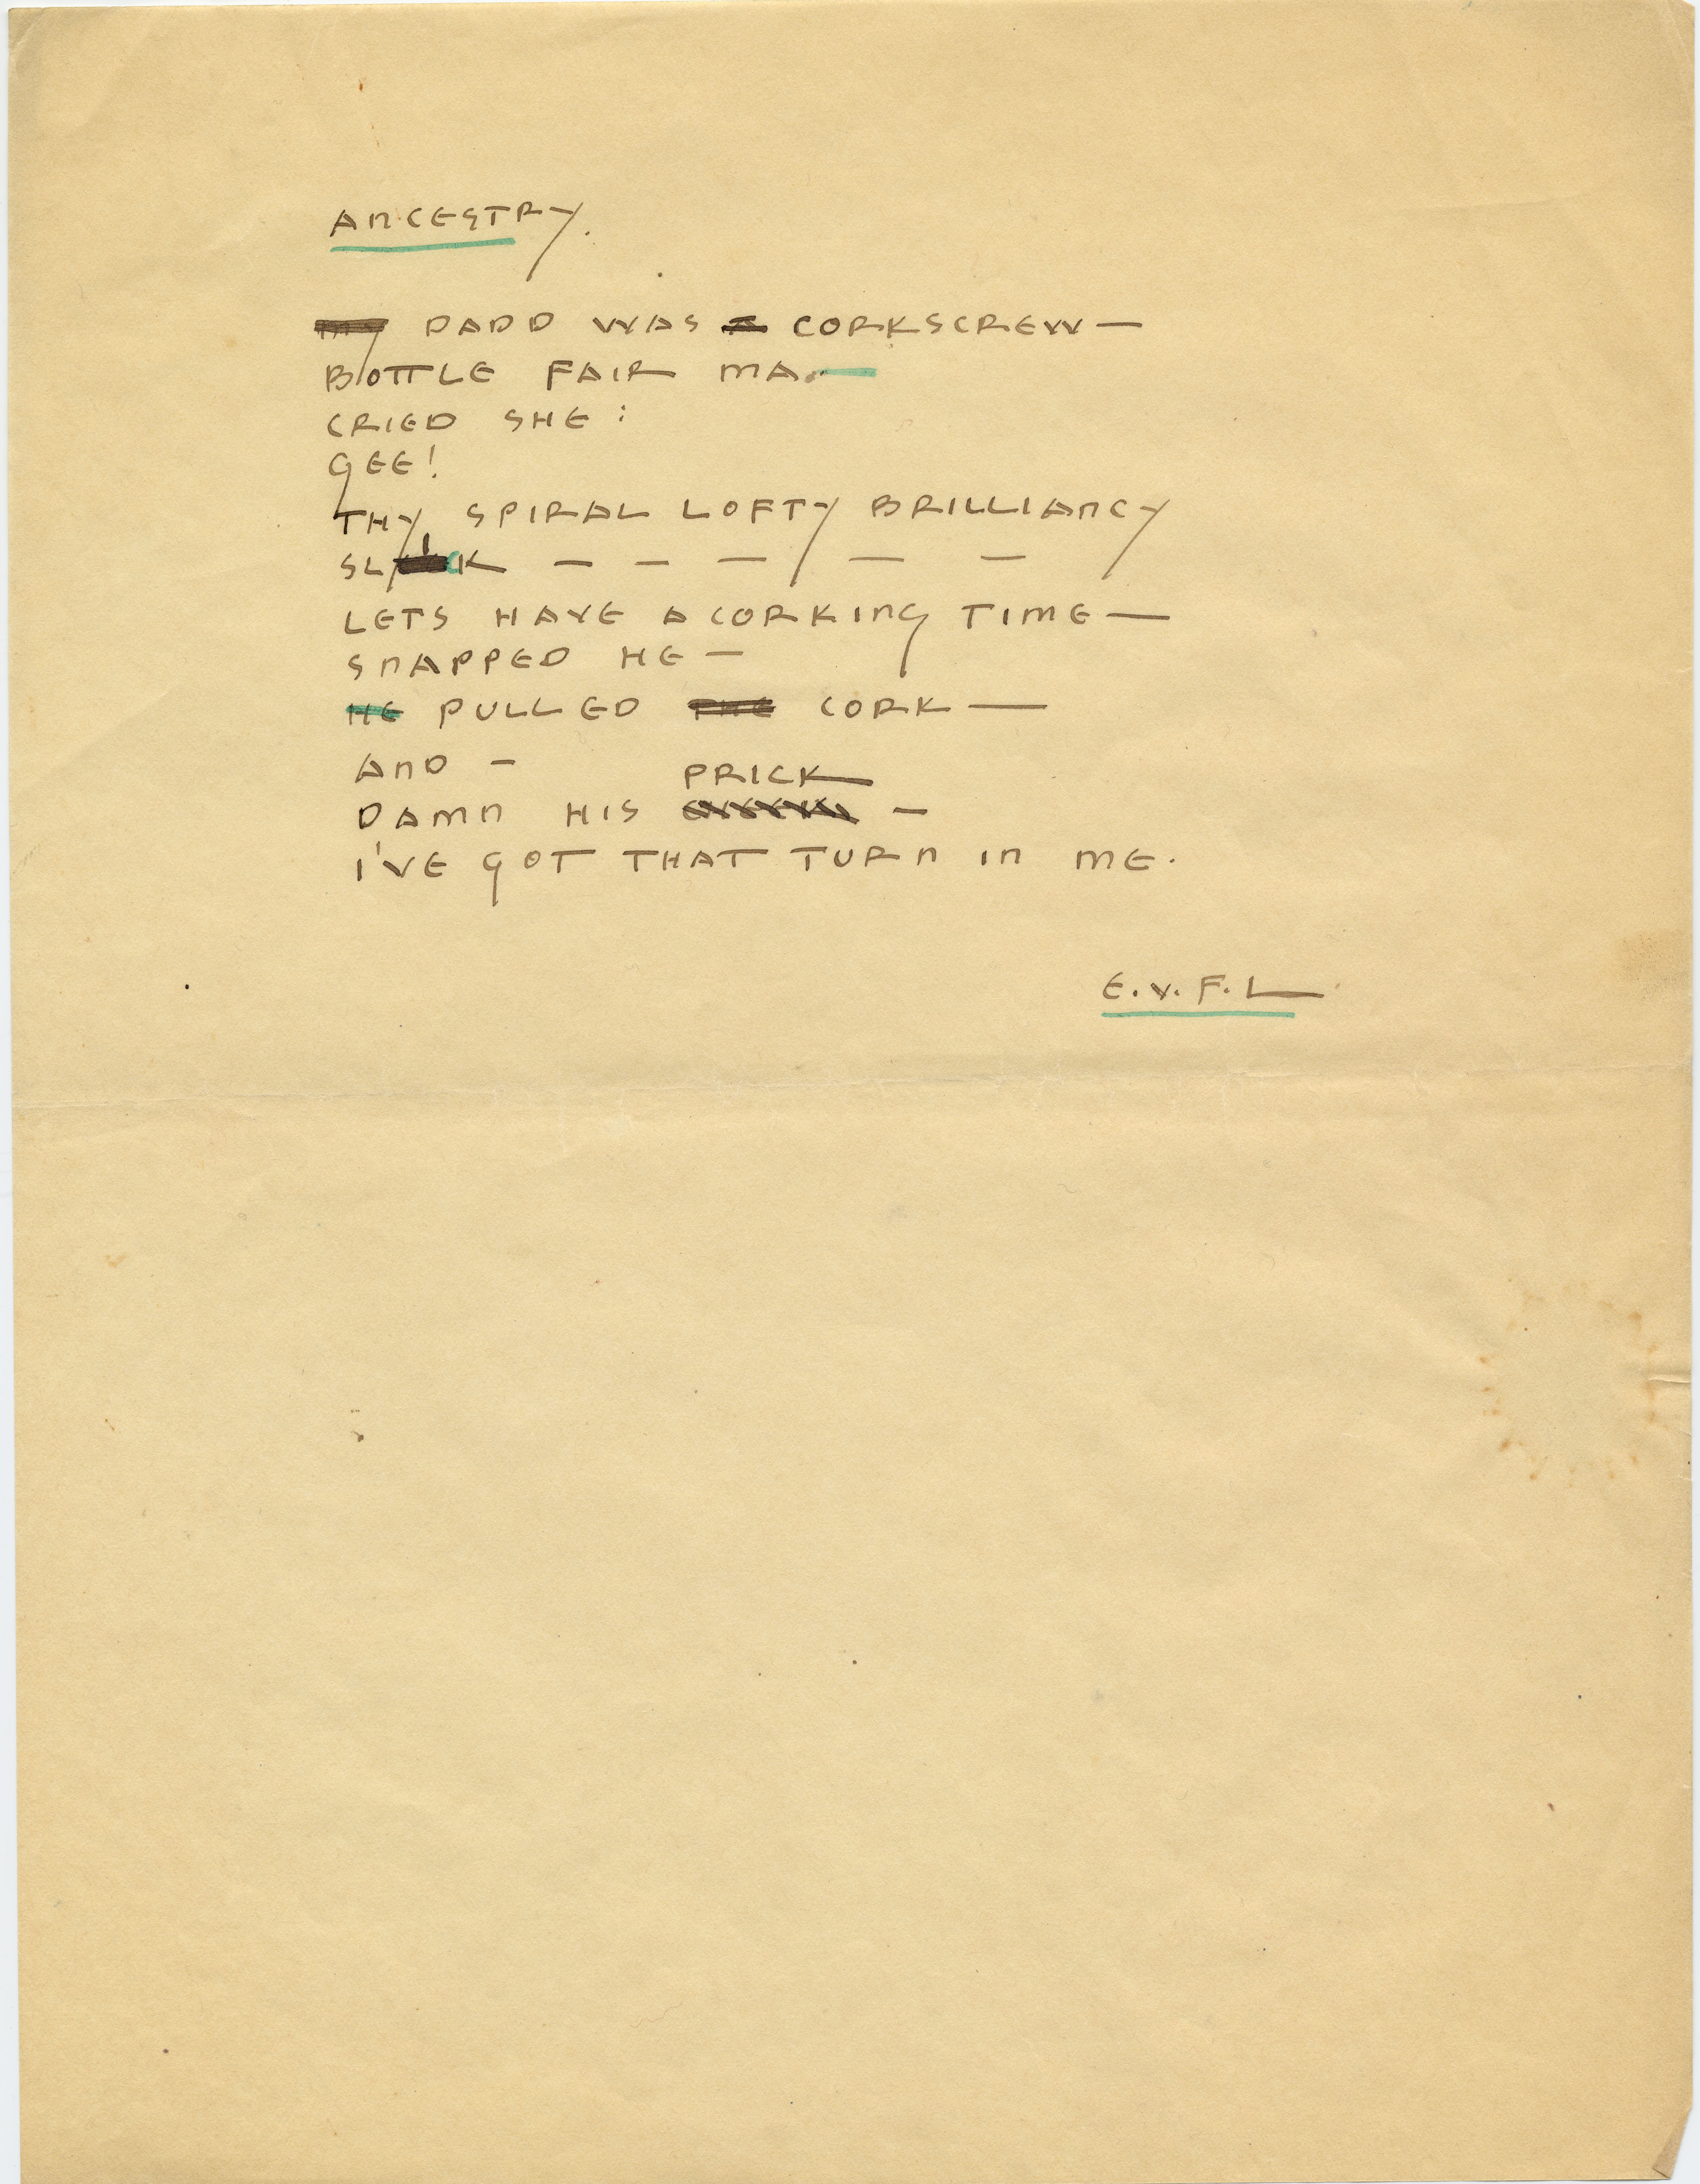 ANCESTRY.
MY DADD WAS A CORKSCREW —
BOTTLE FAIR MA. —
CRIED SHE :
GEE!
THY SPIRAL LOFTY BRILLIANCY
SLICK — — — — —
LETS HAVE A CORKING TIME —
SNAPPED HE —
HE PULLED THE CORK —
AND —
PRICK
DAMN HIS —
I'VE GOT THAT TURN IN ME.
E. V. F. L